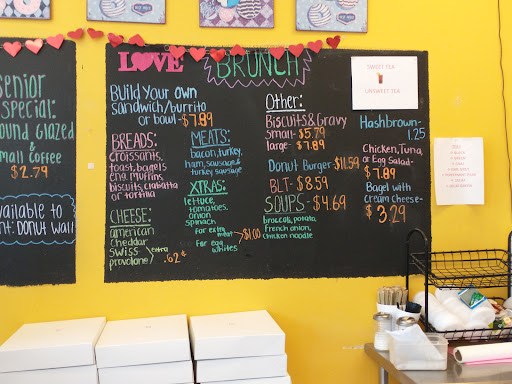 Senior
Special:
ound Glazed
&
small Coffee
$2.79
vailable to
nt: DONUT Wall
LOVE BRUNCH
Build Your own
sandwich/burrito
or bowl-$7.89
BREADS:
croissants,
toast, bagels
eng. muffins,
biscuits, ciabatta
or tortilla
CHEESE:
american
cheddar
swiss
provolone
extra .62¢
MEATS:
bacon, turkey,
ham, sausage &
turkey sausage
XTRAS:
lettuce,
tomatoes,
onion
spinach
For extra
meat
For egg
whites
$1.00
Other:
Biscuits & Gravy
small- $5.79
large- $7.89
Donut Burger-$11.59
BLT- $8.59
SOUPS-$4.69
broccoli, potato,
French onion,
chicken noodle
SWEET TEA
UNSWEET TEA
Hashbrown-
1.25
Chicken, Tuna,
or Egg Salad-
$7.89
Bagel with
cream Cheese-
$3.29